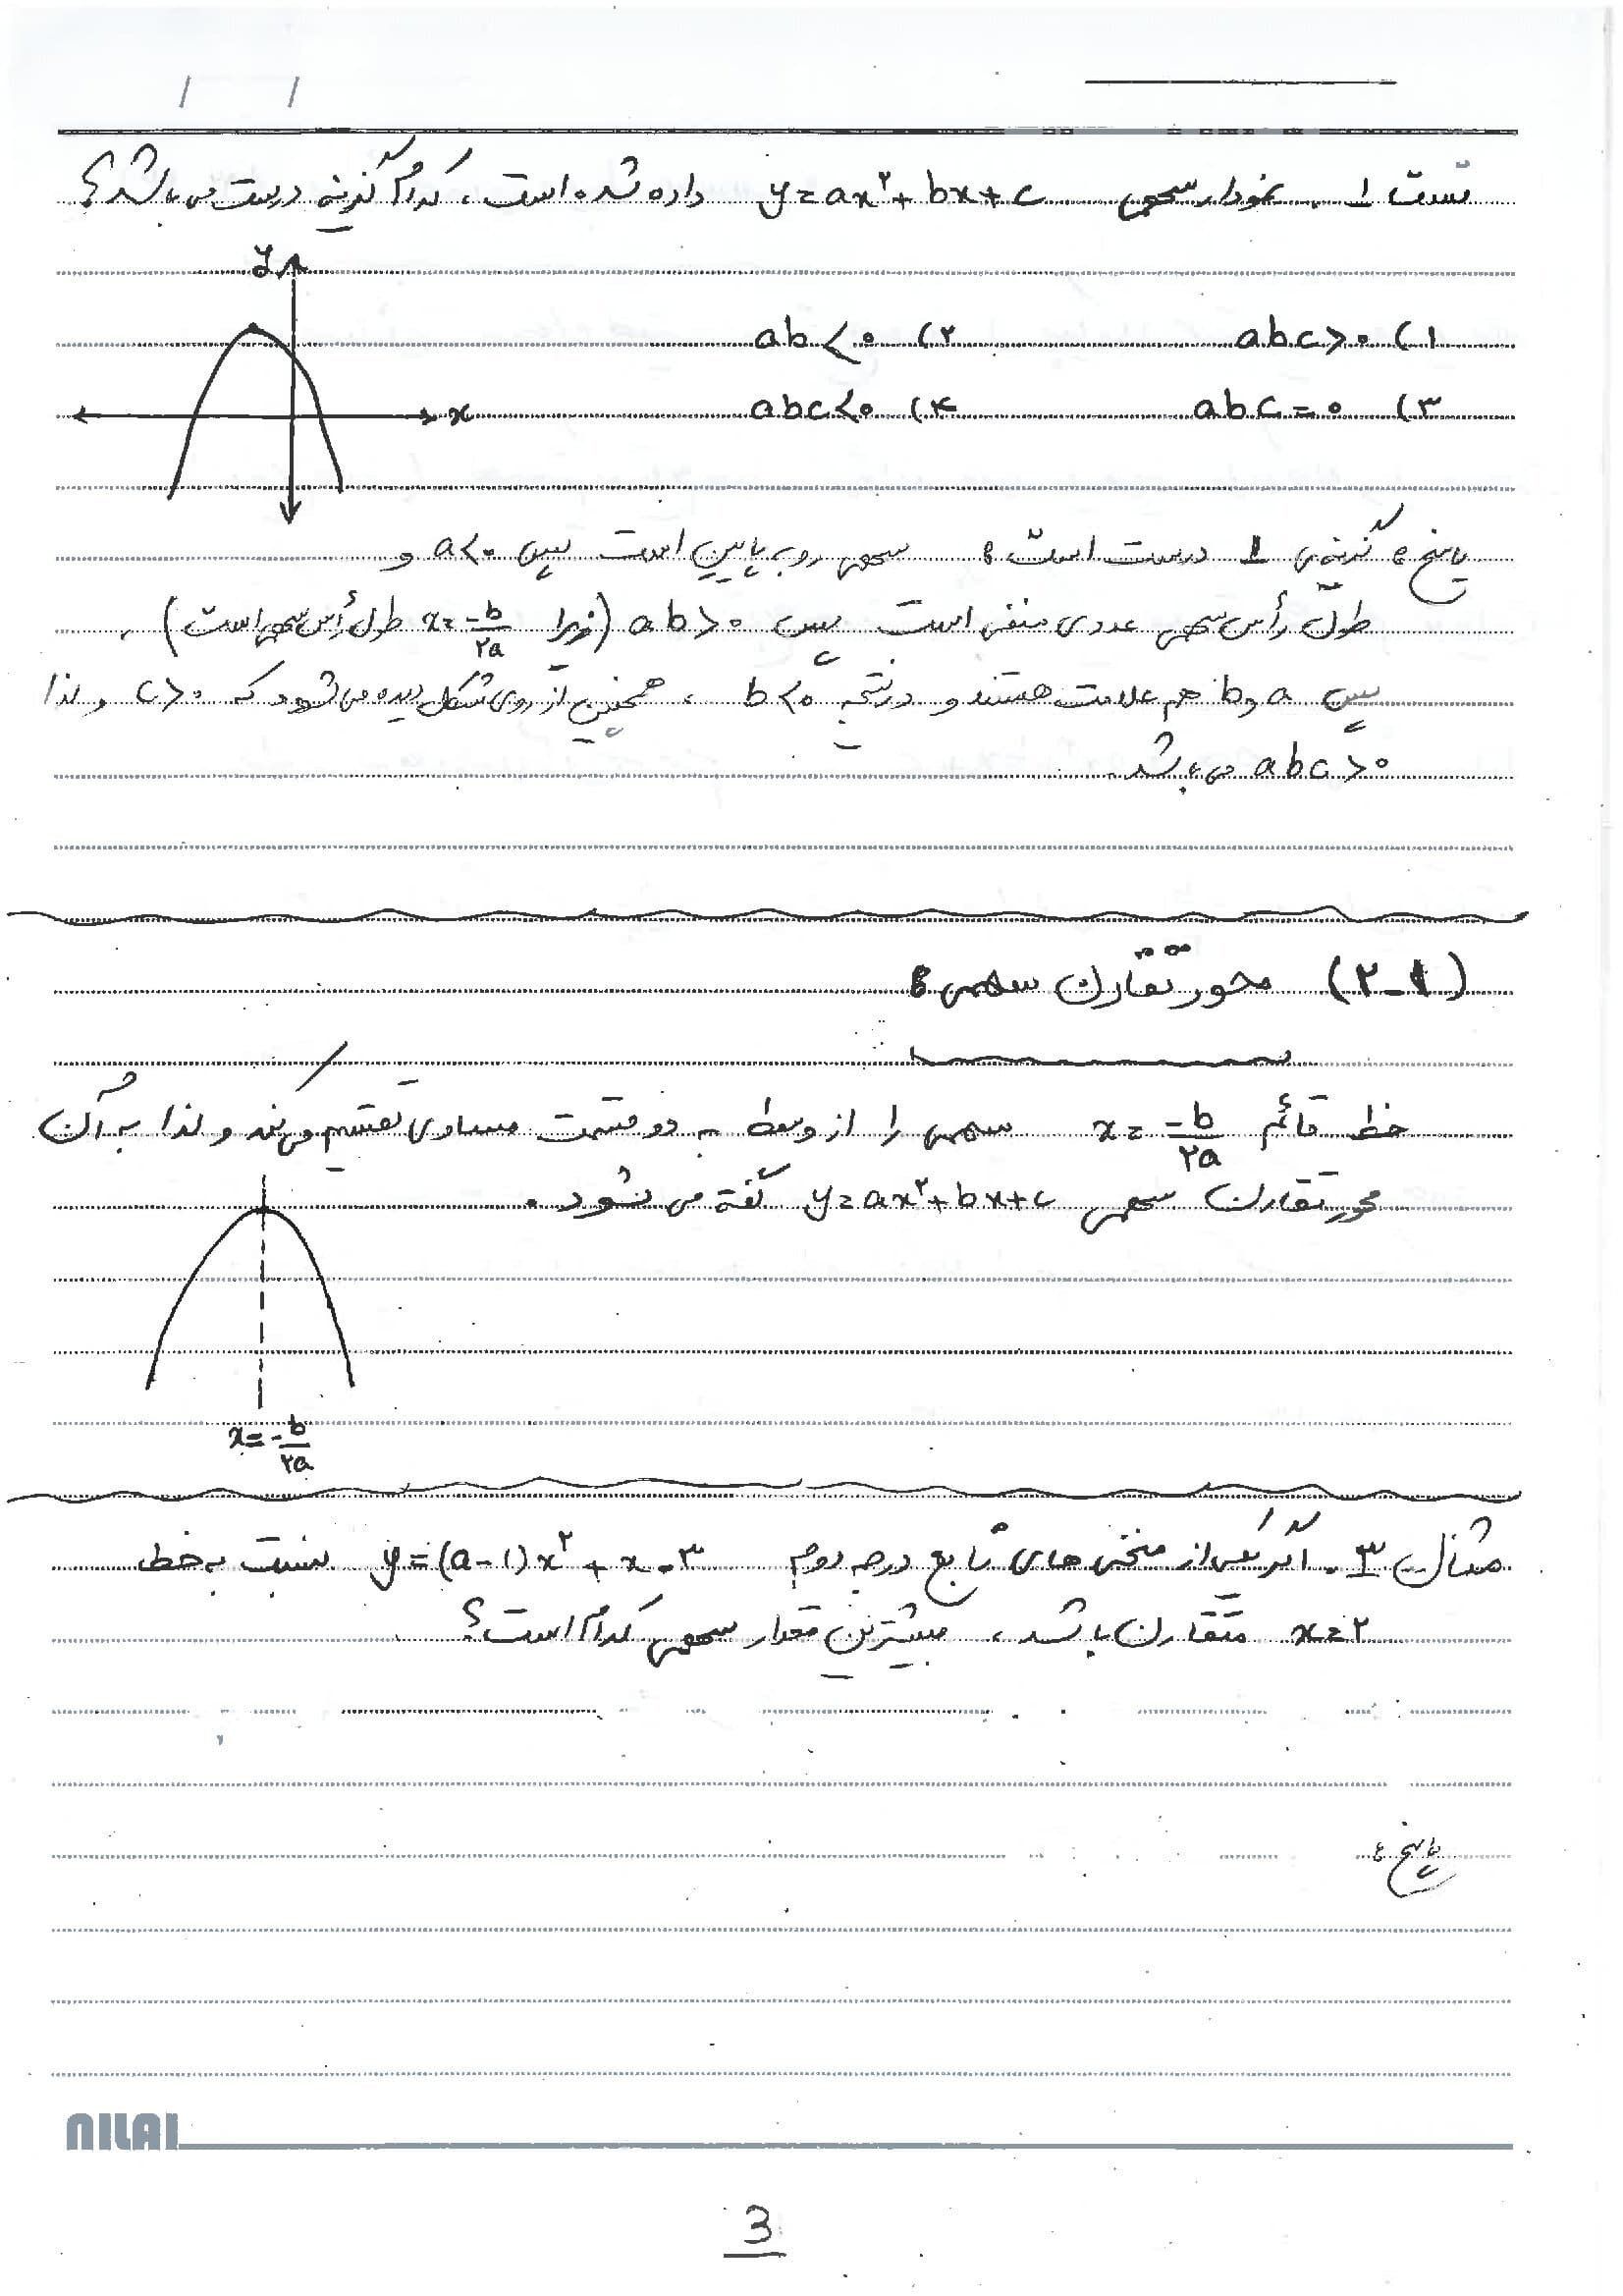 تست ۱. نمودار سهمی y=ax²+bx+c داده شده است، کدام گزینه درست می باشد؟
y
۱) abc>۰ ۲) ab<۰
۳) abc=۰ ۴) abc<۰
x
پاسخ: گزینه‌ی ۱ درست است: سهمی رو به پایین است پس a<۰ و
طول رأس سهمی عددی منفی است پس ab>۰ (زیرا x=-b/۲a طول رأس سهمی است)،
پس a و b هم علامت هستند و در نتیجه b<۰، همچنین از روی شکل دیده می شود که c>۰ و لذا
abc>۰ می باشد.
(۲-۱) محور تقارن سهمی:
خط قائم x=-b/۲a سهمی را از وسط به دو قسمت مساوی تقسیم می کند و لذا به آن
محور تقارن سهمی y=ax²+bx+c گفته می شود.
x=-b/۲a
مثال ۳. اگر یکی از منحنی های تابع درجه دوم y=(a-۱)x²+x-۳ نسبت به خط
x=۲ متقارن باشد، بیشترین مقدار سهمی کدام است؟
پاسخ:
NILAI
3